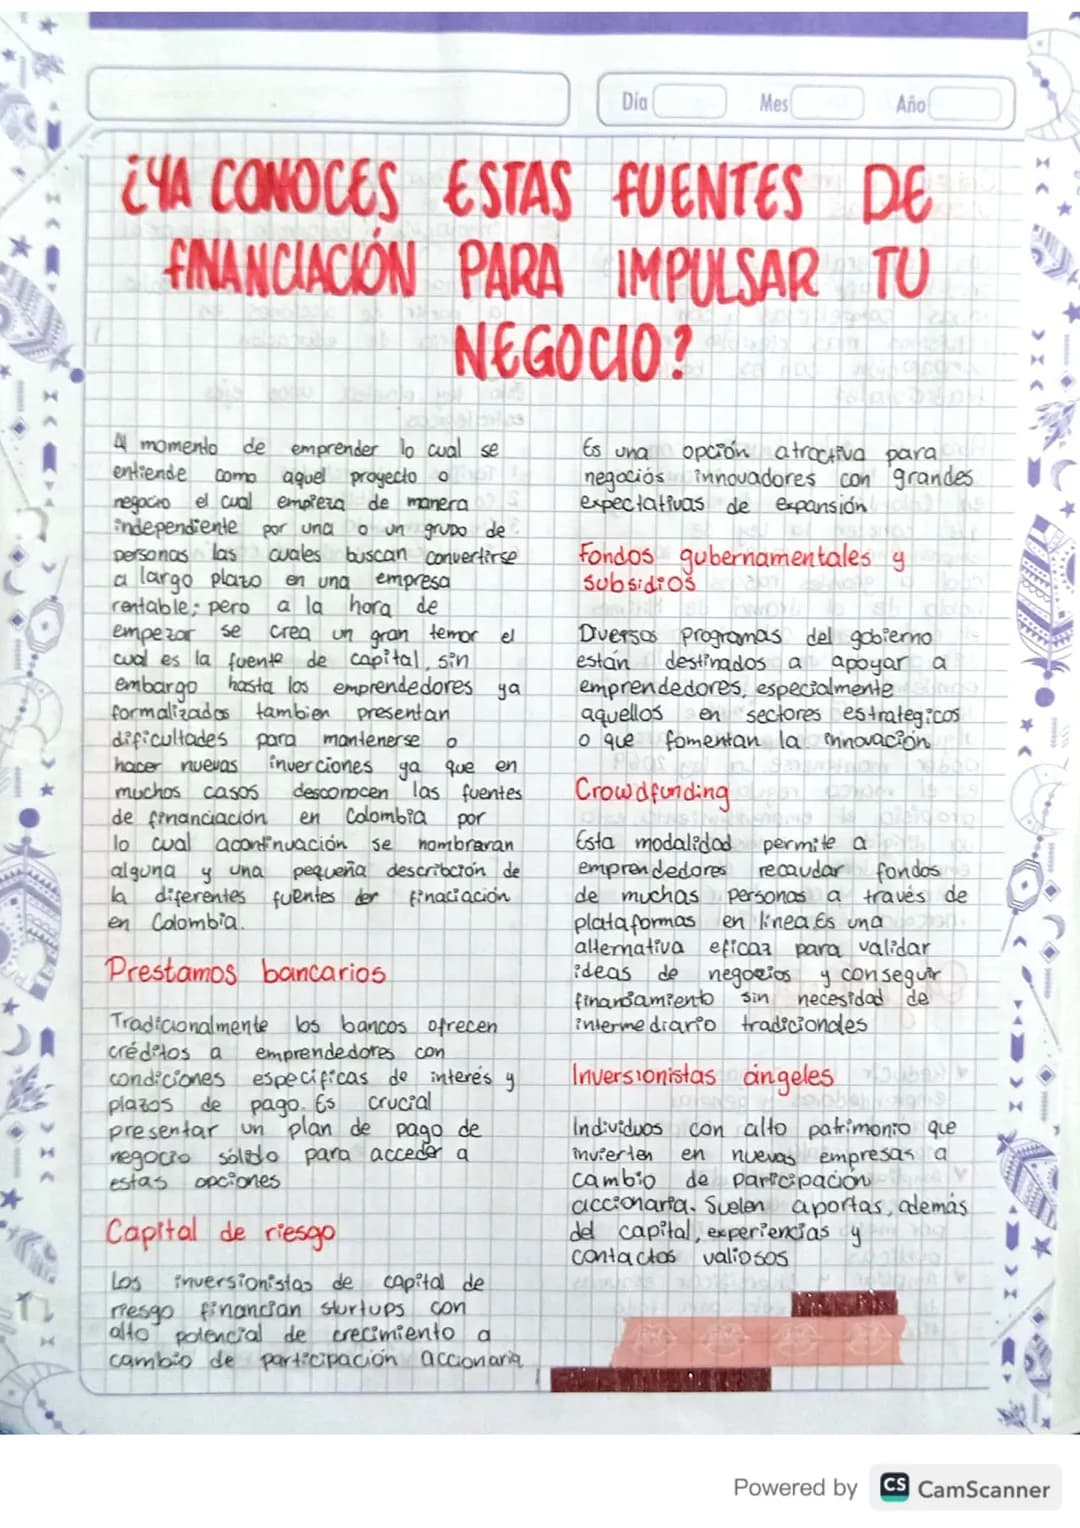 Día
Mes
Año
¿YA CONOCES ESTAS FUENTES DE
FINANCIACIÓN PARA IMPULSAR TU
NEGOCIO?
Al momento de emprender lo cual se
entiende como aquel proyecto o
negocio el cual empieza de manera
independiente por una o un grupo de
personas las cuales buscan convertirse
a largo plazo en una empresa
rentable; pero a la hora de
empezar se crea un gran temor el
cual es la fuente de capital, sin
embargo hasta los emprendedores ya
formalizados tambien presentan
dificultades para mantenerse o
hacer nuevas inverciones ya que en
muchos casos desconocen las fuentes
de financiación en Colombia por
lo cual acontinuación se nombraran
alguna y una pequeña describción de
la diferentes fuentes der finaciación
en Colombia.
Prestamos bancarios
Tradicionalmente los bancos ofrecen
créditos a emprendedores con
condiciones especificas de interés y
plazos de pago. Es crucial
presentar un plan de pago de
negocio sólido para acceder a
estas opciones
Capital de riesgo
Los inversionistas de capital de
riesgo financian sturtups con
alto potencial de crecimiento a
cambio de participación accionaria
Es una opción atractiva para
negociós innovadores con grandes
expectativas de expansión
Fondos gubernamentales y
subsidios
Diversos programas del gobierno
están destinados a apoyar a
emprendedores, especialmente
aquellos en sectores estrategicos
o que fomentan la innovación
Crowdfunding
Esta modalidad permite a
emprendedores recaudar fondos
de muchas personas a través de
plataformas en línea.Es una
alternativa eficaz para validar
ideas de negocios y conseguir
financiamiento sin necesidad de
intermediario tradicionales
Inversionistas ángeles
Individuos con alto patrimonio que
invierten en nuevas empresas a
cambio de participación
accionaria. Suelen aportas, además
del capital, experiencias y
contactos valiosos
Powered by CS CamScanner